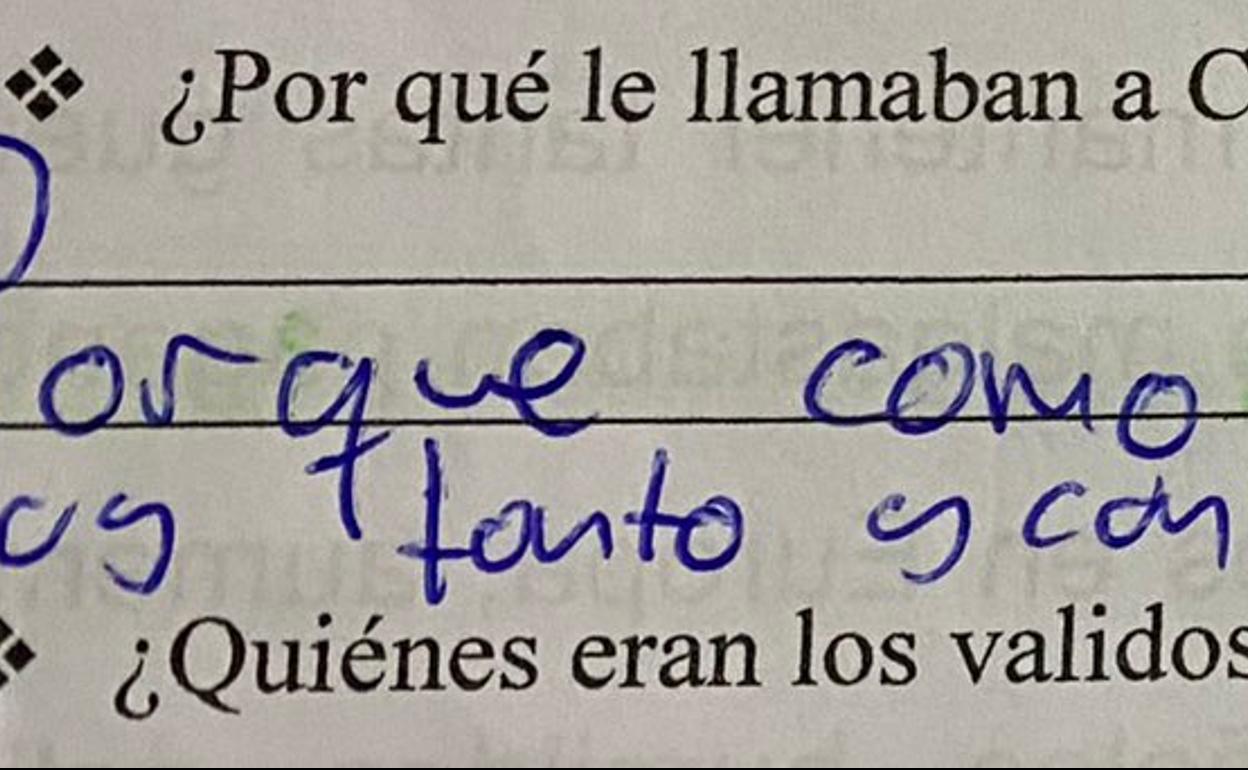 ❖ ¿Por qué le llamaban a C
orque como
uy tonto y con
❖ ¿Quiénes eran los validos